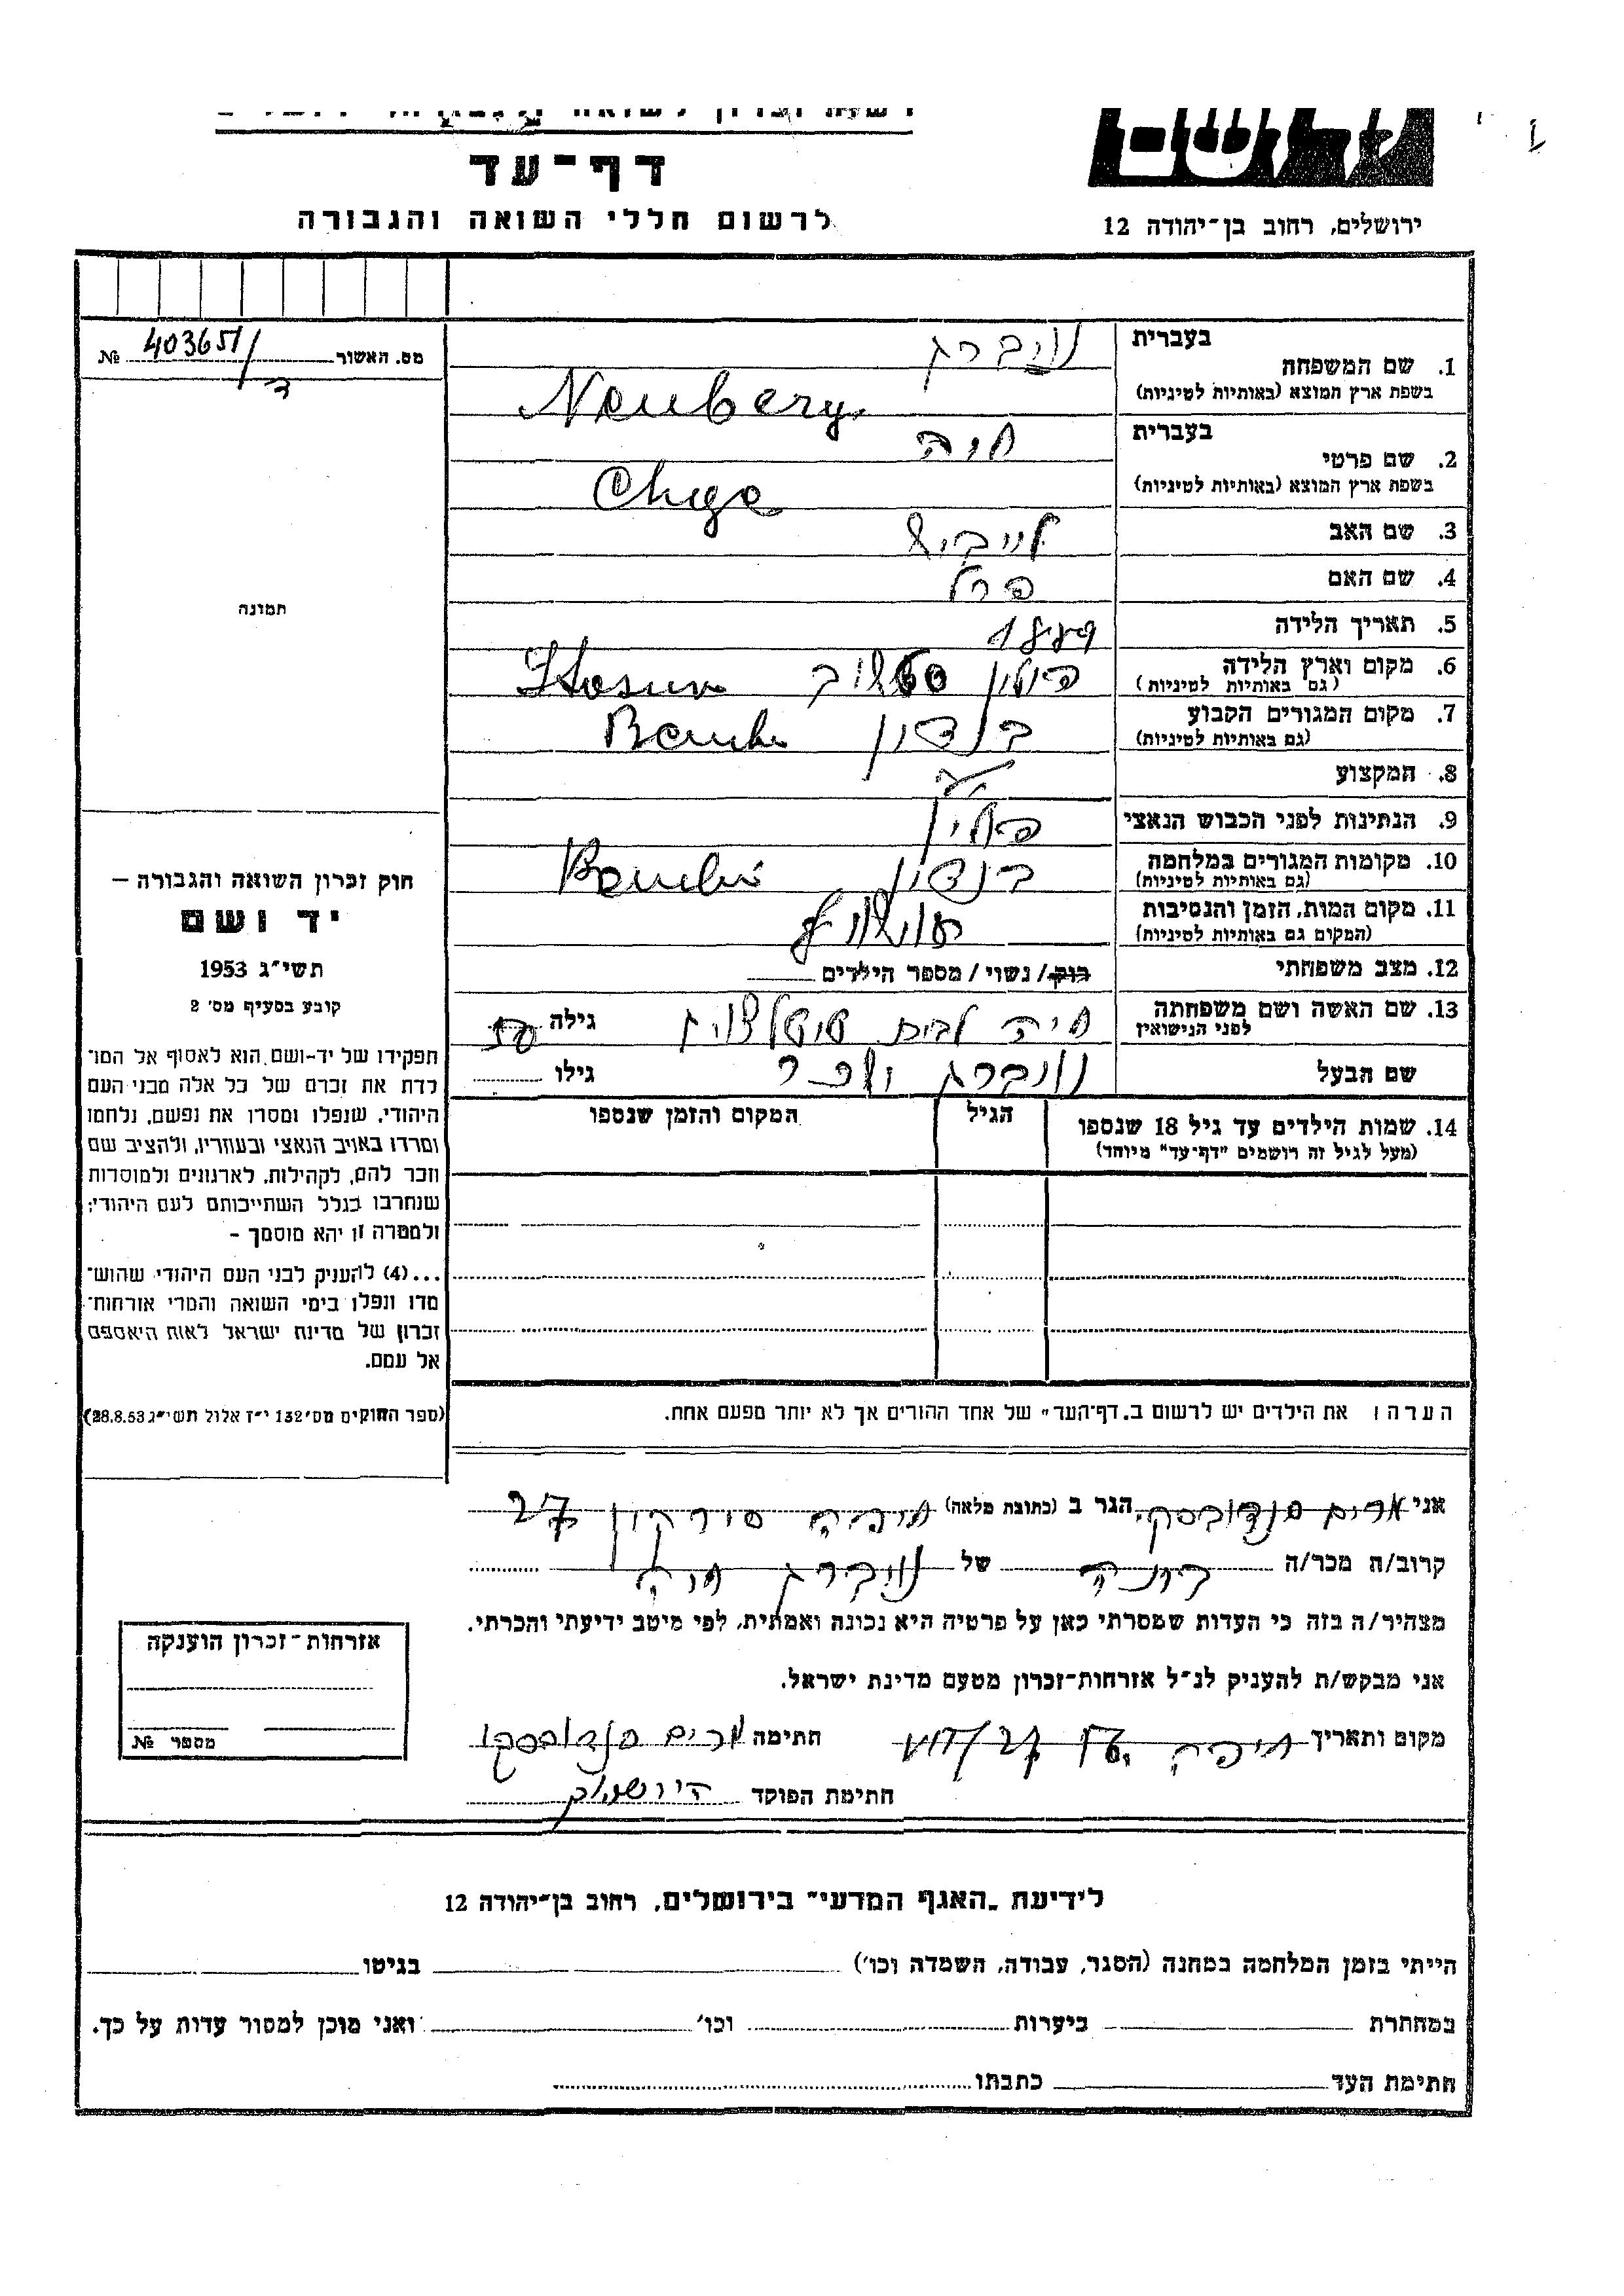 דף-עד
לרשום חללי השואה והגבורה
ירושלים, רחוב בן-יהודה 12
מס. האשור 403651/ №
ד
בעברית נויברג
1. שם המשפחה
בשפת ארץ המוצא (באותיות לטיניות) Neuberg
בעברית חיה
2. שם פרטי
בשפת ארץ המוצא (באותיות לטיניות)
3. שם האב
4. שם האם פרל
5. תאריך הלידה 1889
6. מקום וארץ הלידה פולין
(גם באותיות לטיניות)
7. מקום המגורים הקבוע בנדין
(גם באותיות לטיניות)
8. המקצוע
9. הנתינות לפני הכבוש הנאצי פולין
10. מקומות המגורים במלחמה בנדין
(גם באותיות לטיניות)
11. מקום המות, הזמן והנסיבות אושוויץ
(המקום גם באותיות לטיניות)
12. מצב משפחתי רווק/ נשוי / מספר הילדים
13. שם האשה ושם משפחתה חיה לבית גילה
לפני הנישואין
שם הבעל נויברג גילו
14. שמות הילדים עד גיל 18 שנספו הגיל המקום והזמן שנספו
(מעל לגיל זה רושמים "דף-עד" מיוחד)
הערה: את הילדים יש לרשום ב„דף-העד" של אחד ההורים אך לא יותר מפעם אחת.
תמונה
חוק זכרון השואה והגבורה –
יד ושם
תשי"ג 1953
קובע בסעיף מס' 2
תפקידו של יד-ושם הוא לאסוף אל המו־
לדת את זכרם של כל אלה מבני העם
היהודי, שנפלו ומסרו את נפשם, נלחמו
ומרדו באויב הנאצי ובעוזריו, ולהציב שם
וזכר להם, לקהילות, לארגונים ולמוסדות
שנחרבו בגלל השתייכותם לעם היהודי;
ולמטרה זו יהא מוסמך –
...(4) להעניק לבני העם היהודי שהוש־
מדו ונפלו בימי השואה והמרי אזרחות־
זכרון של מדינת ישראל לאות היאספם
אל עמם.
(ספר החוקים מס' 132 י"ז אלול תשי"ג 28.8.53)
אני מרים סנדובסקי הגר ב (כתובת מלאה) חיפה סירקין 27
קרוב/ה מכר/ה של נויברג חיה
מצהיר/ה בזה כי העדות שמסרתי כאן על פרטיה היא נכונה ואמתית, לפי מיטב ידיעתי והכרתי.
אני מבקש/ת להעניק לנ"ל אזרחות-זכרון מטעם מדינת ישראל.
מקום ותאריך חיפה חתימה מרים סנדובסקי
חתימת הפוקד
אזרחות-זכרון הוענקה
מספר №
לידיעת „האגף המדעי" בירושלים, רחוב בן-יהודה 12
הייתי בזמן המלחמה במחנה (הסגר, עבודה, השמדה וכו') בגיטו
במחתרת ביערות וכו' ואני מוכן למסור עדות על כך.
חתימת העד כתבתו